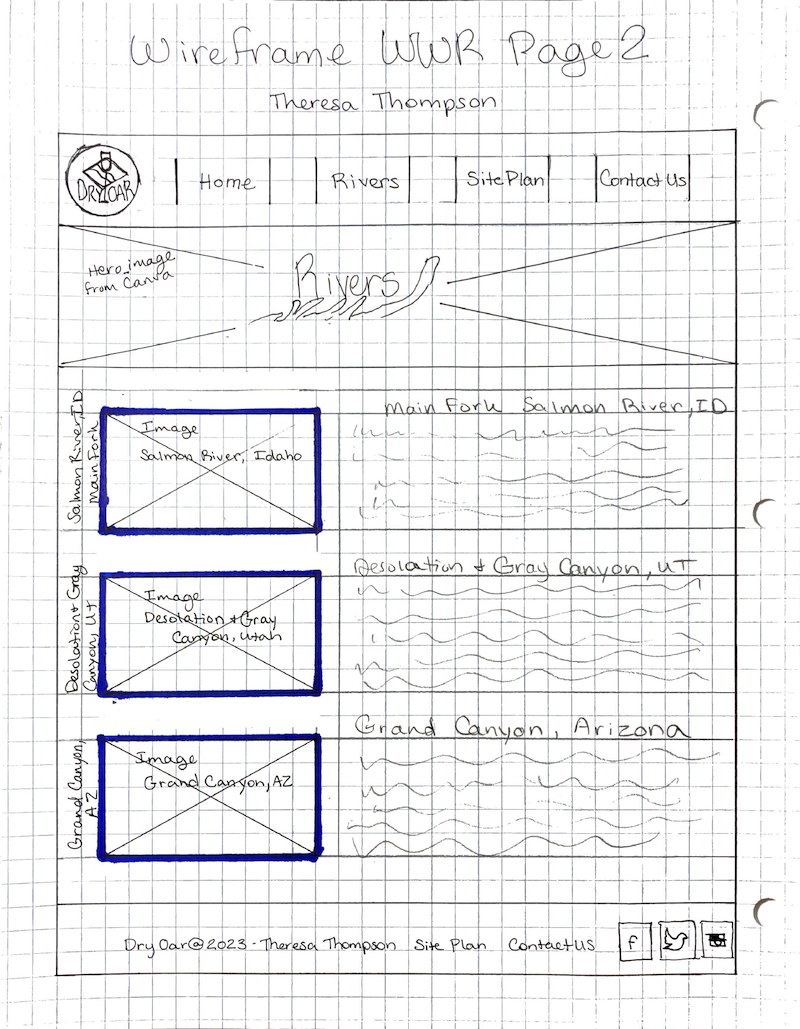 Wireframe WWR Page 2
Theresa Thompson
DRY OAR
Home
Rivers
Site Plan
Contact Us
Hero image
from Canva
Rivers
Salmon River, ID
Main Fork
Image
Salmon River, Idaho
Main Fork Salmon River, ID
Desolation & Gray
Canyon, UT
Image
Desolation & Gray
Canyon, Utah
Desolation & Gray Canyon, UT
Grand Canyon,
AZ
Image
Grand Canyon, AZ
Grand Canyon, Arizona
Dry Oar@2023 - Theresa Thompson Site Plan Contact US
f